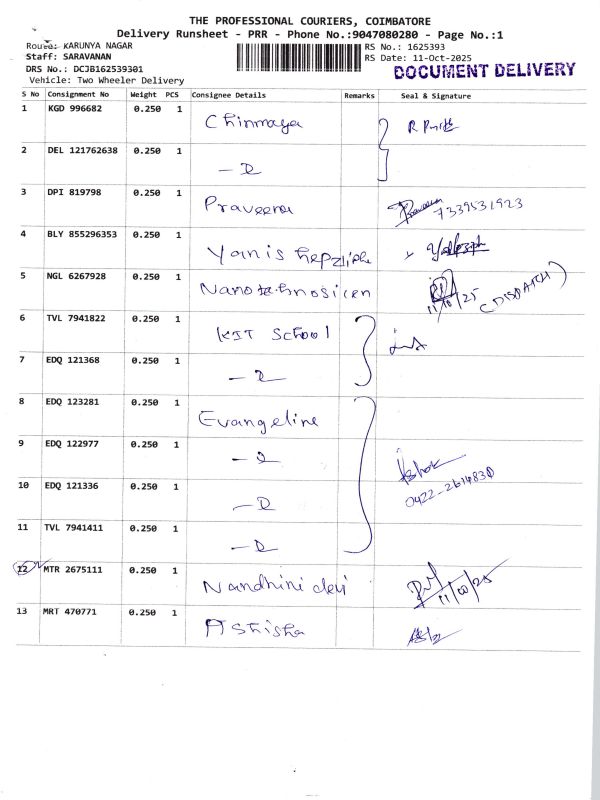 THE PROFESSIONAL COURIERS, COIMBATORE
Delivery Runsheet - PRR - Phone No.:9047080280 - Page No.:1
Route: KARUNYA NAGAR RS No.: 1625393
Staff: SARAVANAN RS Date: 11-Oct-2025
DRS No.: DCJB162539301 DOCUMENT DELIVERY
Vehicle: Two Wheeler Delivery
S No Consignment No Weight PCS Consignee Details Remarks Seal & Signature
1 KGD 996682 0.250 1 Chinmaya
2 DEL 121762638 0.250 1 — D
3 DPI 819798 0.250 1 Praveena 7339531923
4 BLY 855296353 0.250 1 Yanis hepzibha
5 NGL 6267928 0.250 1 11/10/25 (DISPATCH)
6 TVL 7941822 0.250 1 KIT School
7 EDQ 121368 0.250 1 — D
8 EDQ 123281 0.250 1 Evangeline
9 EDQ 122977 0.250 1 — D
Ashok
10 EDQ 121336 0.250 1 — D 0422-2614830
11 TVL 7941411 0.250 1 — D
12 MTR 2675111 0.250 1 Nandhini devi 11/10/25
13 MRT 470771 0.250 1 Ashisha